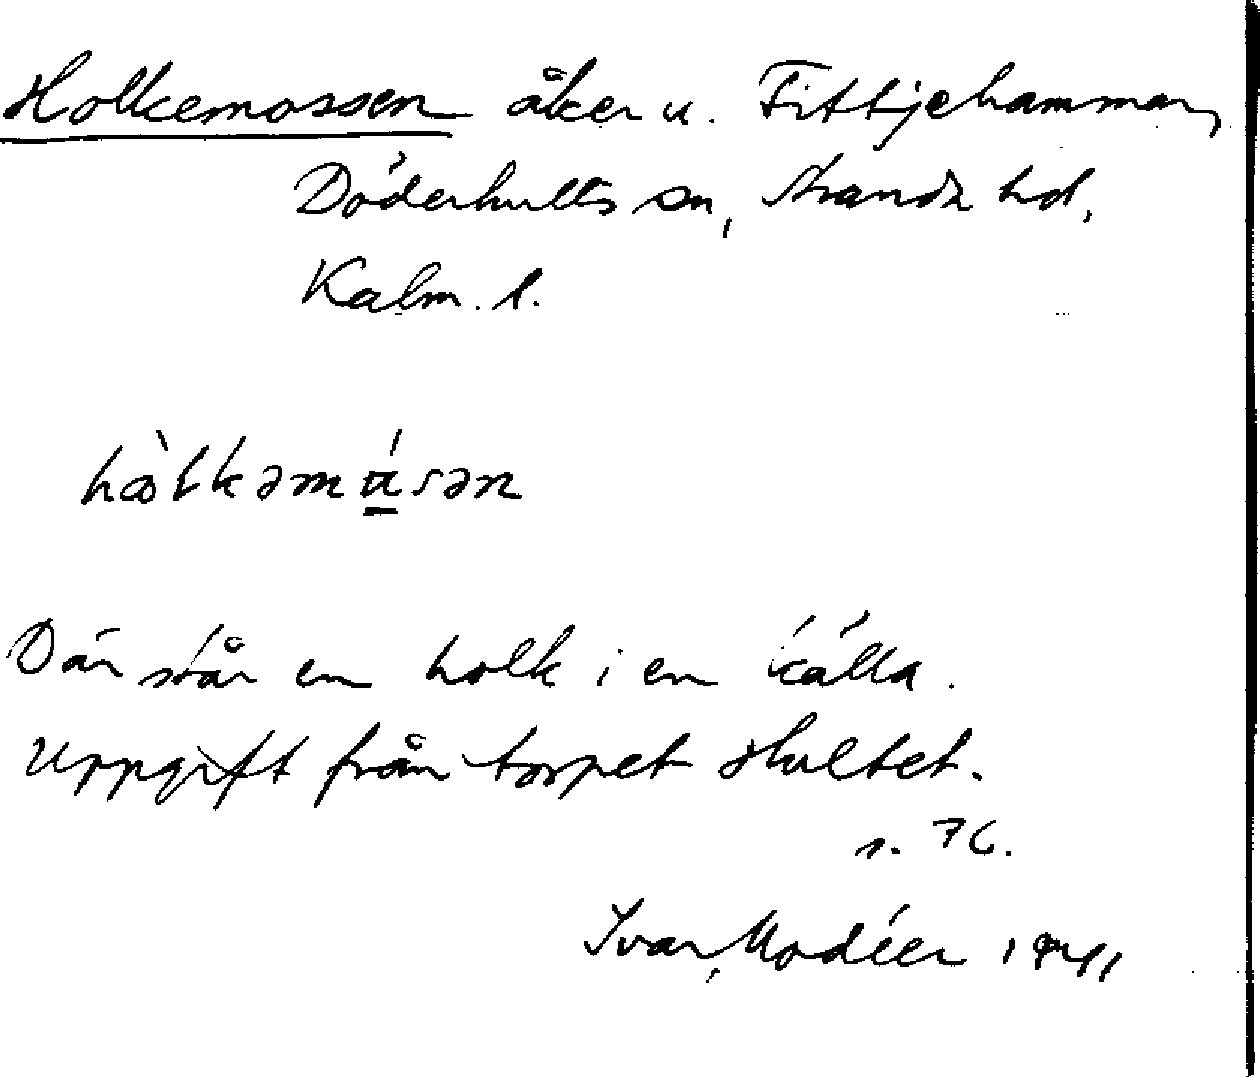 Holkemossen åker u. Fittjehammar,
Döderhults sn, Stranda hd,
Kalm. l.
hòlkəmɑ́sən
Där står en holk i en källa.
Uppgift från torpet Hultet.
s. 76.
Ivar Modéer 1941